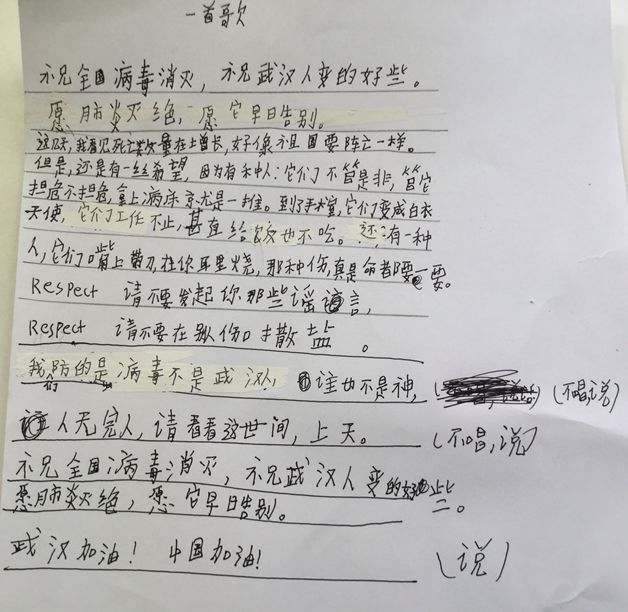 一首歌
祝全国病毒消灭，祝武汉人变的好些。
愿肺炎灭绝，愿它早日告别。
这几天，我看见死亡数量在土曾长，好像祖国要阵亡一样。
但是，还是有一丝希望，因为有种人：它们不管是非，管它
担危不担危，拿上病床京尤是一推。到了手术室，它们变成白衣
天使，它们工作不止，甚至给饭也不吃。还有一种
人，它们嘴上带刀，在你耳里烧，那种伤，真是命都要一要。
Respect 请不要发起你那些谣言，
Respect 请不要在别伤口扌散盐。
我们防的是病毒不是武汉人，谁也不是神，（不唱，说）
人无完人，请看看这世间，上天。（不唱，说）
祝全国病毒消灭，祝武汉人变的好些
愿肺炎灭绝，愿它早日告别。 二。
武汉加油！ 中国加油！ （说）